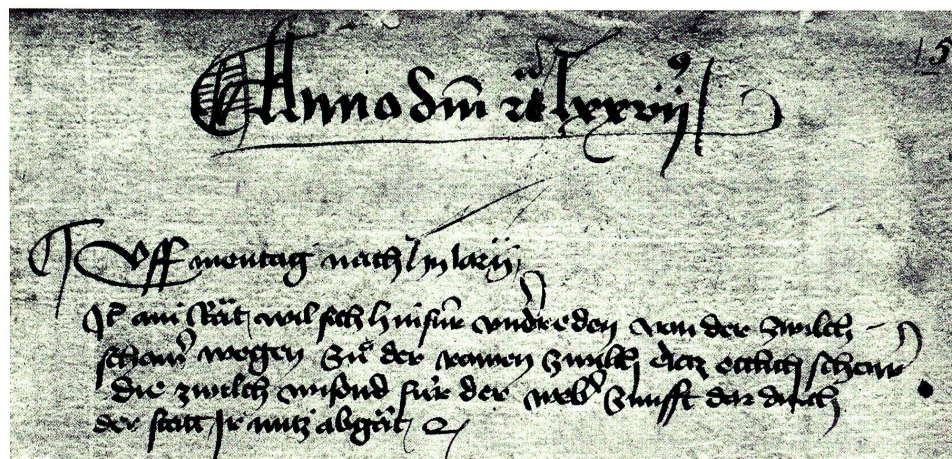 15
Anno dm̄ rc lxxviij
Uff mentag nach hylarij
It ain Rät wil sich hinfür undreden von der zwilch
schower wegen zu der rawen zwilch daz ettlich schower
die zwilch für der web zunfft dar durch
der statt jr nutz abgät